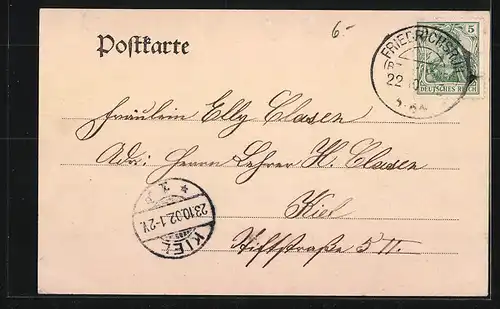 6.-
Postkarte
FRIEDRICHSRUH
22 10
5
DEUTSCHES REICH
Fräulein Elly Clasen
Adr: Herrn Lehrer H. Clasen
Kiel
Stiftstraße 5 II.
KIEL
23.10.02.1-2V.